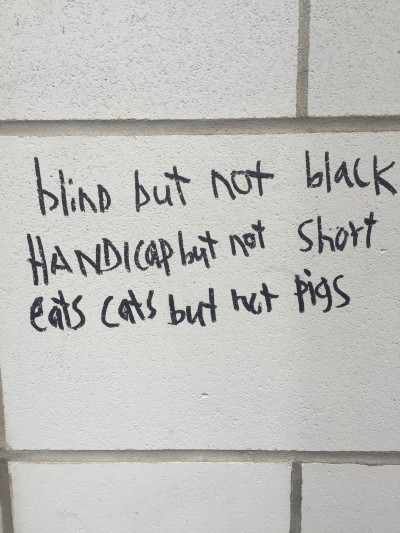 blind but not black
HANDICAP but not short
eats cats but not pigs